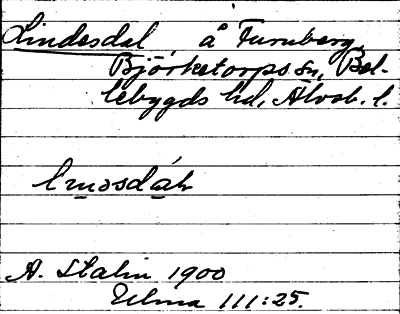 Lindesdal, å Furuberg,
Björketorps sn, Bol-
lebygds hd, Älvsb. l.
A. Stalin 1900
111:25.